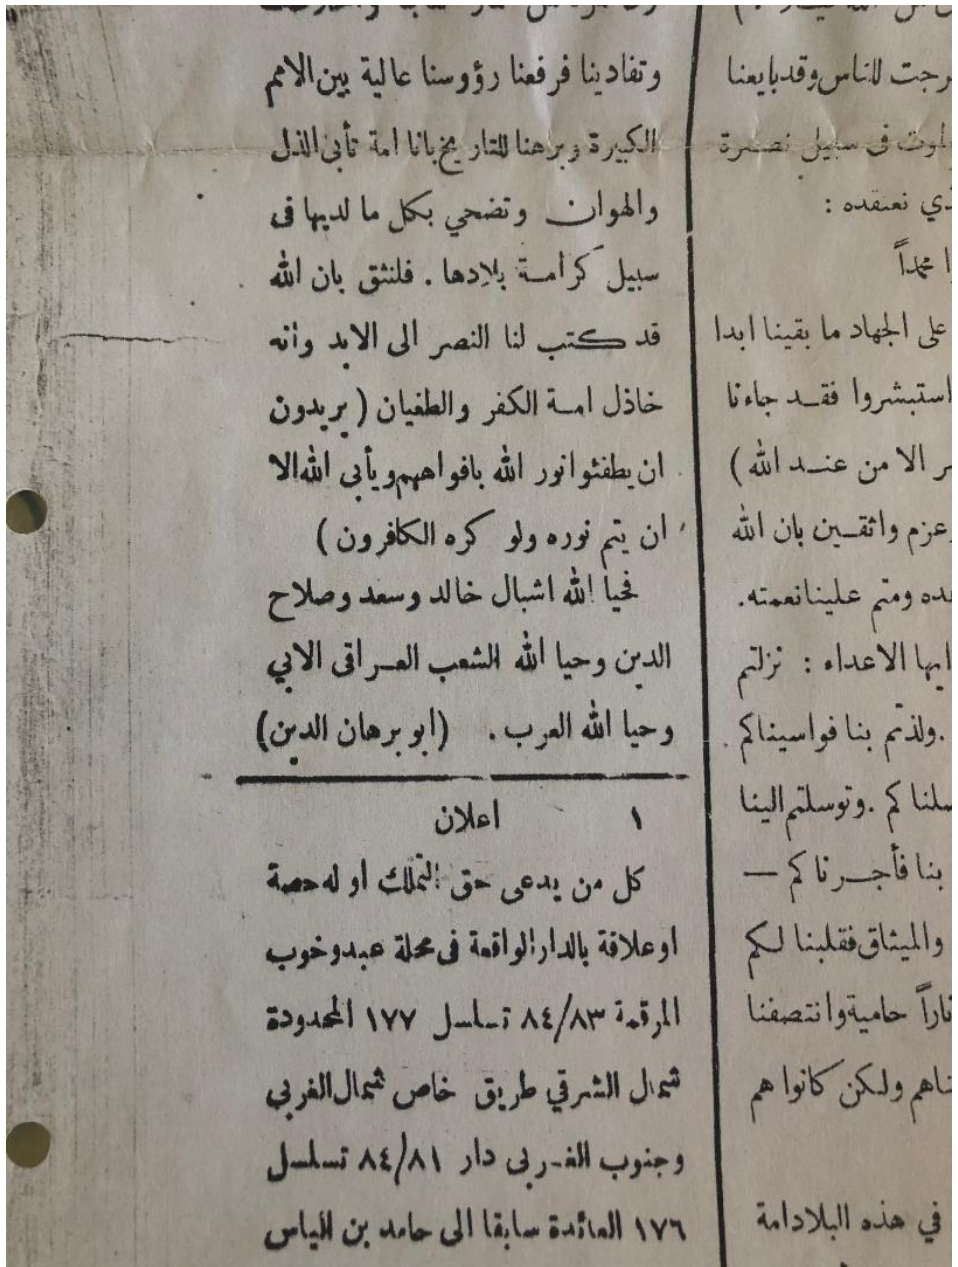 رجت للناس وقد بايعنا
في سبيل نصرة
ذي نعتقده :
ا محمداً
على الجهاد ما بقينا ابدا
استبشروا فقد جاءنا
ر الا من عند الله )
عزم واثقين بان الله
ده ومتم علينا نعمته.
ايها الاعداء : نزلتم
. ولذتم بنا فواسيناكم
سلناكم . وتوسلتم الينا
بنا فأجرناكم —
والميثاق فقلبنا لكم
ناراً حامية وانتصفنا
ناهم ولكن كانوا هم
في هذه البلاد امة
وتفادينا فرفعنا رؤوسنا عالية بين الامم
الكبيرة وبرهنا للتاريخ بانا امة تأبى الذل
والهوان وتضحي بكل ما لديها في
سبيل كرامة بلادها . فلنثق بان الله
قد كتب لنا النصر الى الابد وانه
خاذل امة الكفر والطغيان ( يريدون
ان يطفئوا نور الله بافواههم ويأبى الله الا
ان يتم نوره ولو كره الكافرون )
فحيا الله اشبال خالد وسعد وصلاح
الدين وحيا الله الشعب العراقي الابي
وحيا الله العرب . (ابو برهان الدين)
١ اعلان
كل من يدعى حق التملك او له حصة
او علاقة بالدار الواقعة في محلة عبدو خوب
المرقمة ٨٤/٨٣ تسلسل ١٧٧ المحدودة
شمال الشرقي طريق خاص شمال الغربي
وجنوب الغربي دار ٨٤/٨١ تسلسل
١٧٦ العائدة سابقا الى حامد بن الياس